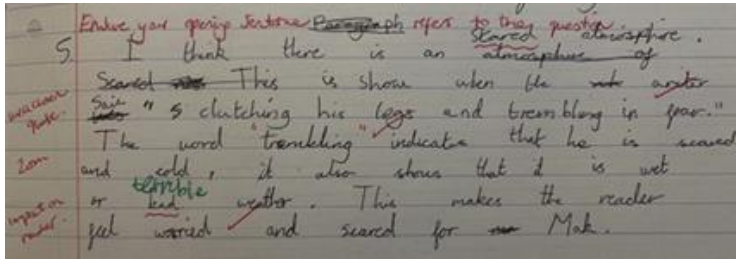 Ensure your opening sentence Paragraph refers to the question
Scared atmosphere.
5. I think there is an atmosphere of
Scared This is show when the writer
said "s clutching his legs and trembling in fear."
The word "trembling" indicates that he is scared
and cold, it also shows that it is wet
terrible
or bad weather. This makes the reader
feel worried and scared for Mak.
quote.
Zoom
impact on
reader.